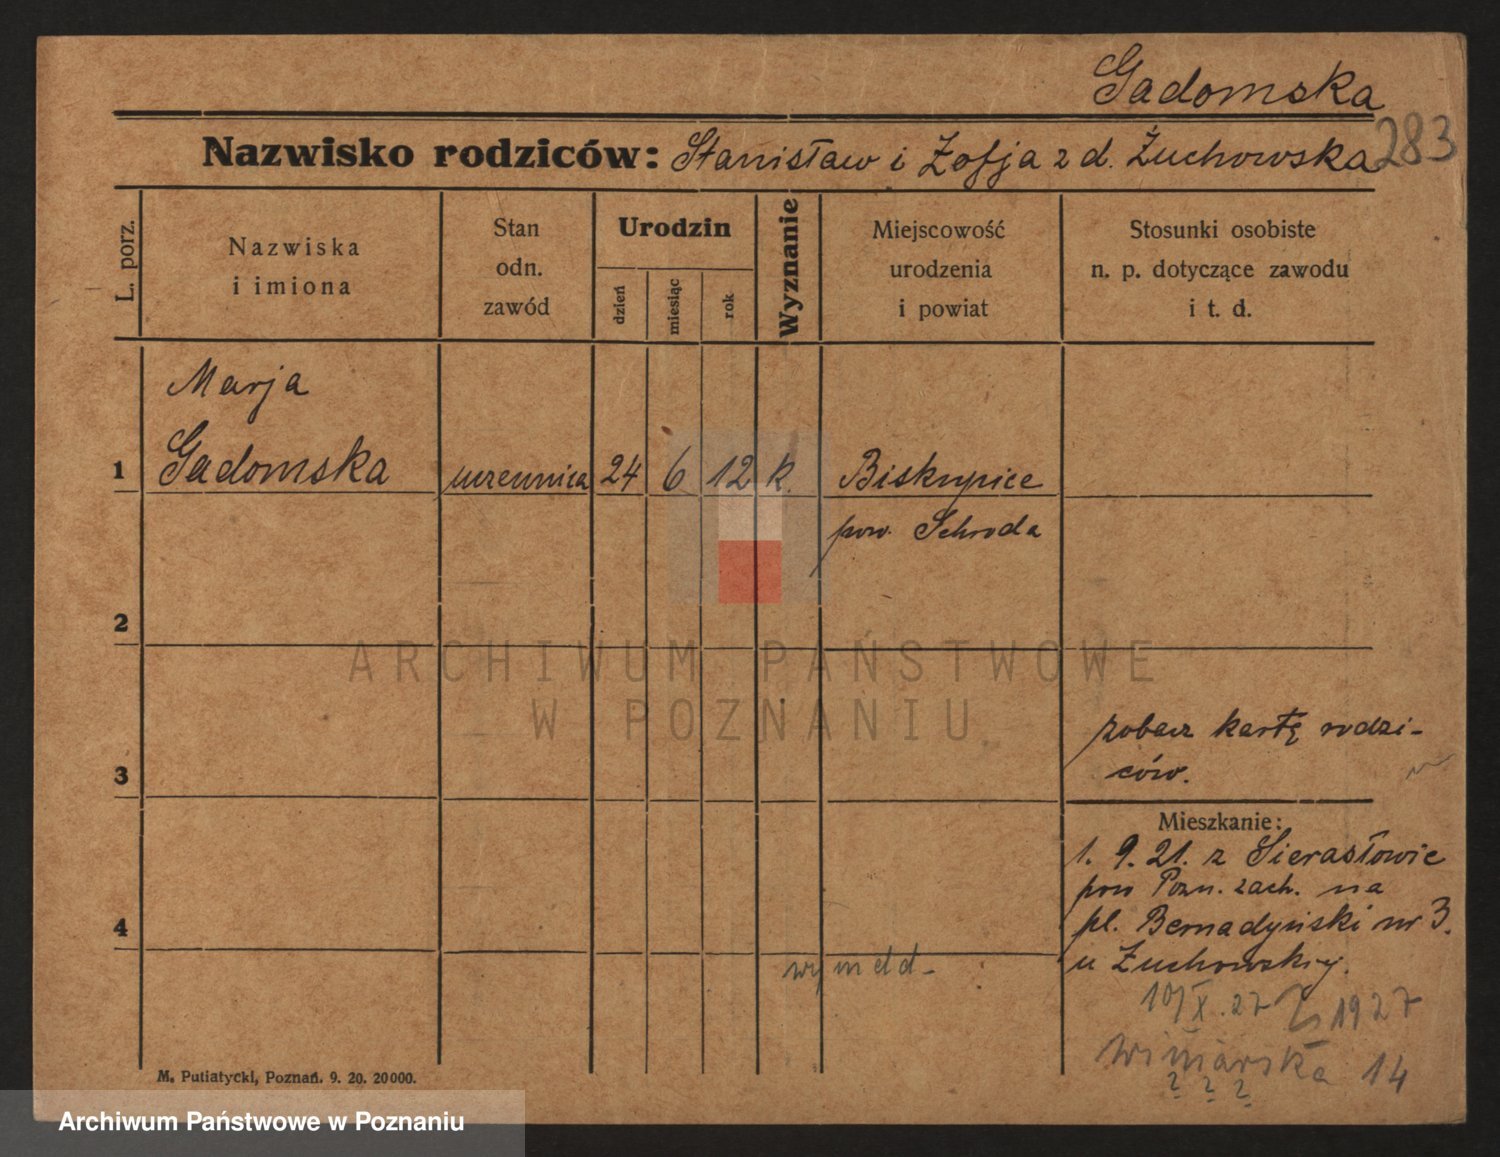 Gadomska
283
Nazwisko rodziców: Stanisław i Zofja z d. Żuchowska
L. porz.
Nazwiska
i imiona
Stan
odn.
zawód
Urodzin
dzień
miesiąc
rok
Wyznanie
Miejscowość
urodzenia
i powiat
Stosunki osobiste
n. p. dotyczące zawodu
i t. d.
Marja
1 Gadomska uczennica 24 6 12 k. Biskupice
pow. Schroda
2
ARCHIWUM PAŃSTWOWE
W POZNANIU
zobacz kartę rodzi-
ców.
3
Mieszkanie:
1. 9. 21. z Sierasłowic
pow Pozn. zach. na
pl. Bernadyński nr 3.
u Żuchowskiej.
4
wymeld-
10/X. 27 1927
Winiarska 14
? ? ?
M. Putiatycki, Poznań. 9. 20. 20000.
Archiwum Państwowe w Poznaniu